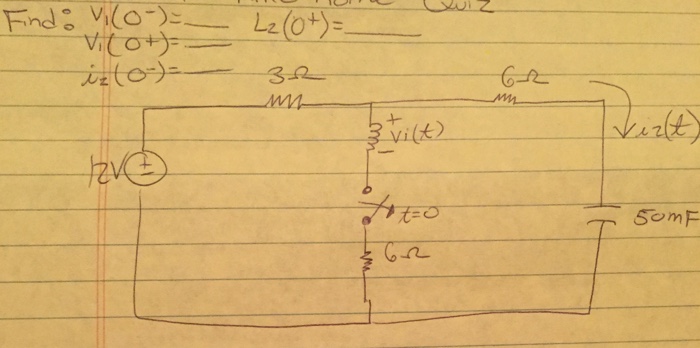 Quiz
Find: V₁(0⁻)=___ L₂(0⁺)=___
V₁(0+)=___
i₂(0⁻)=___
3Ω 6Ω
+
V₁(t)
-
i₂(t)
12V
+
-
t=0
50mF
6Ω